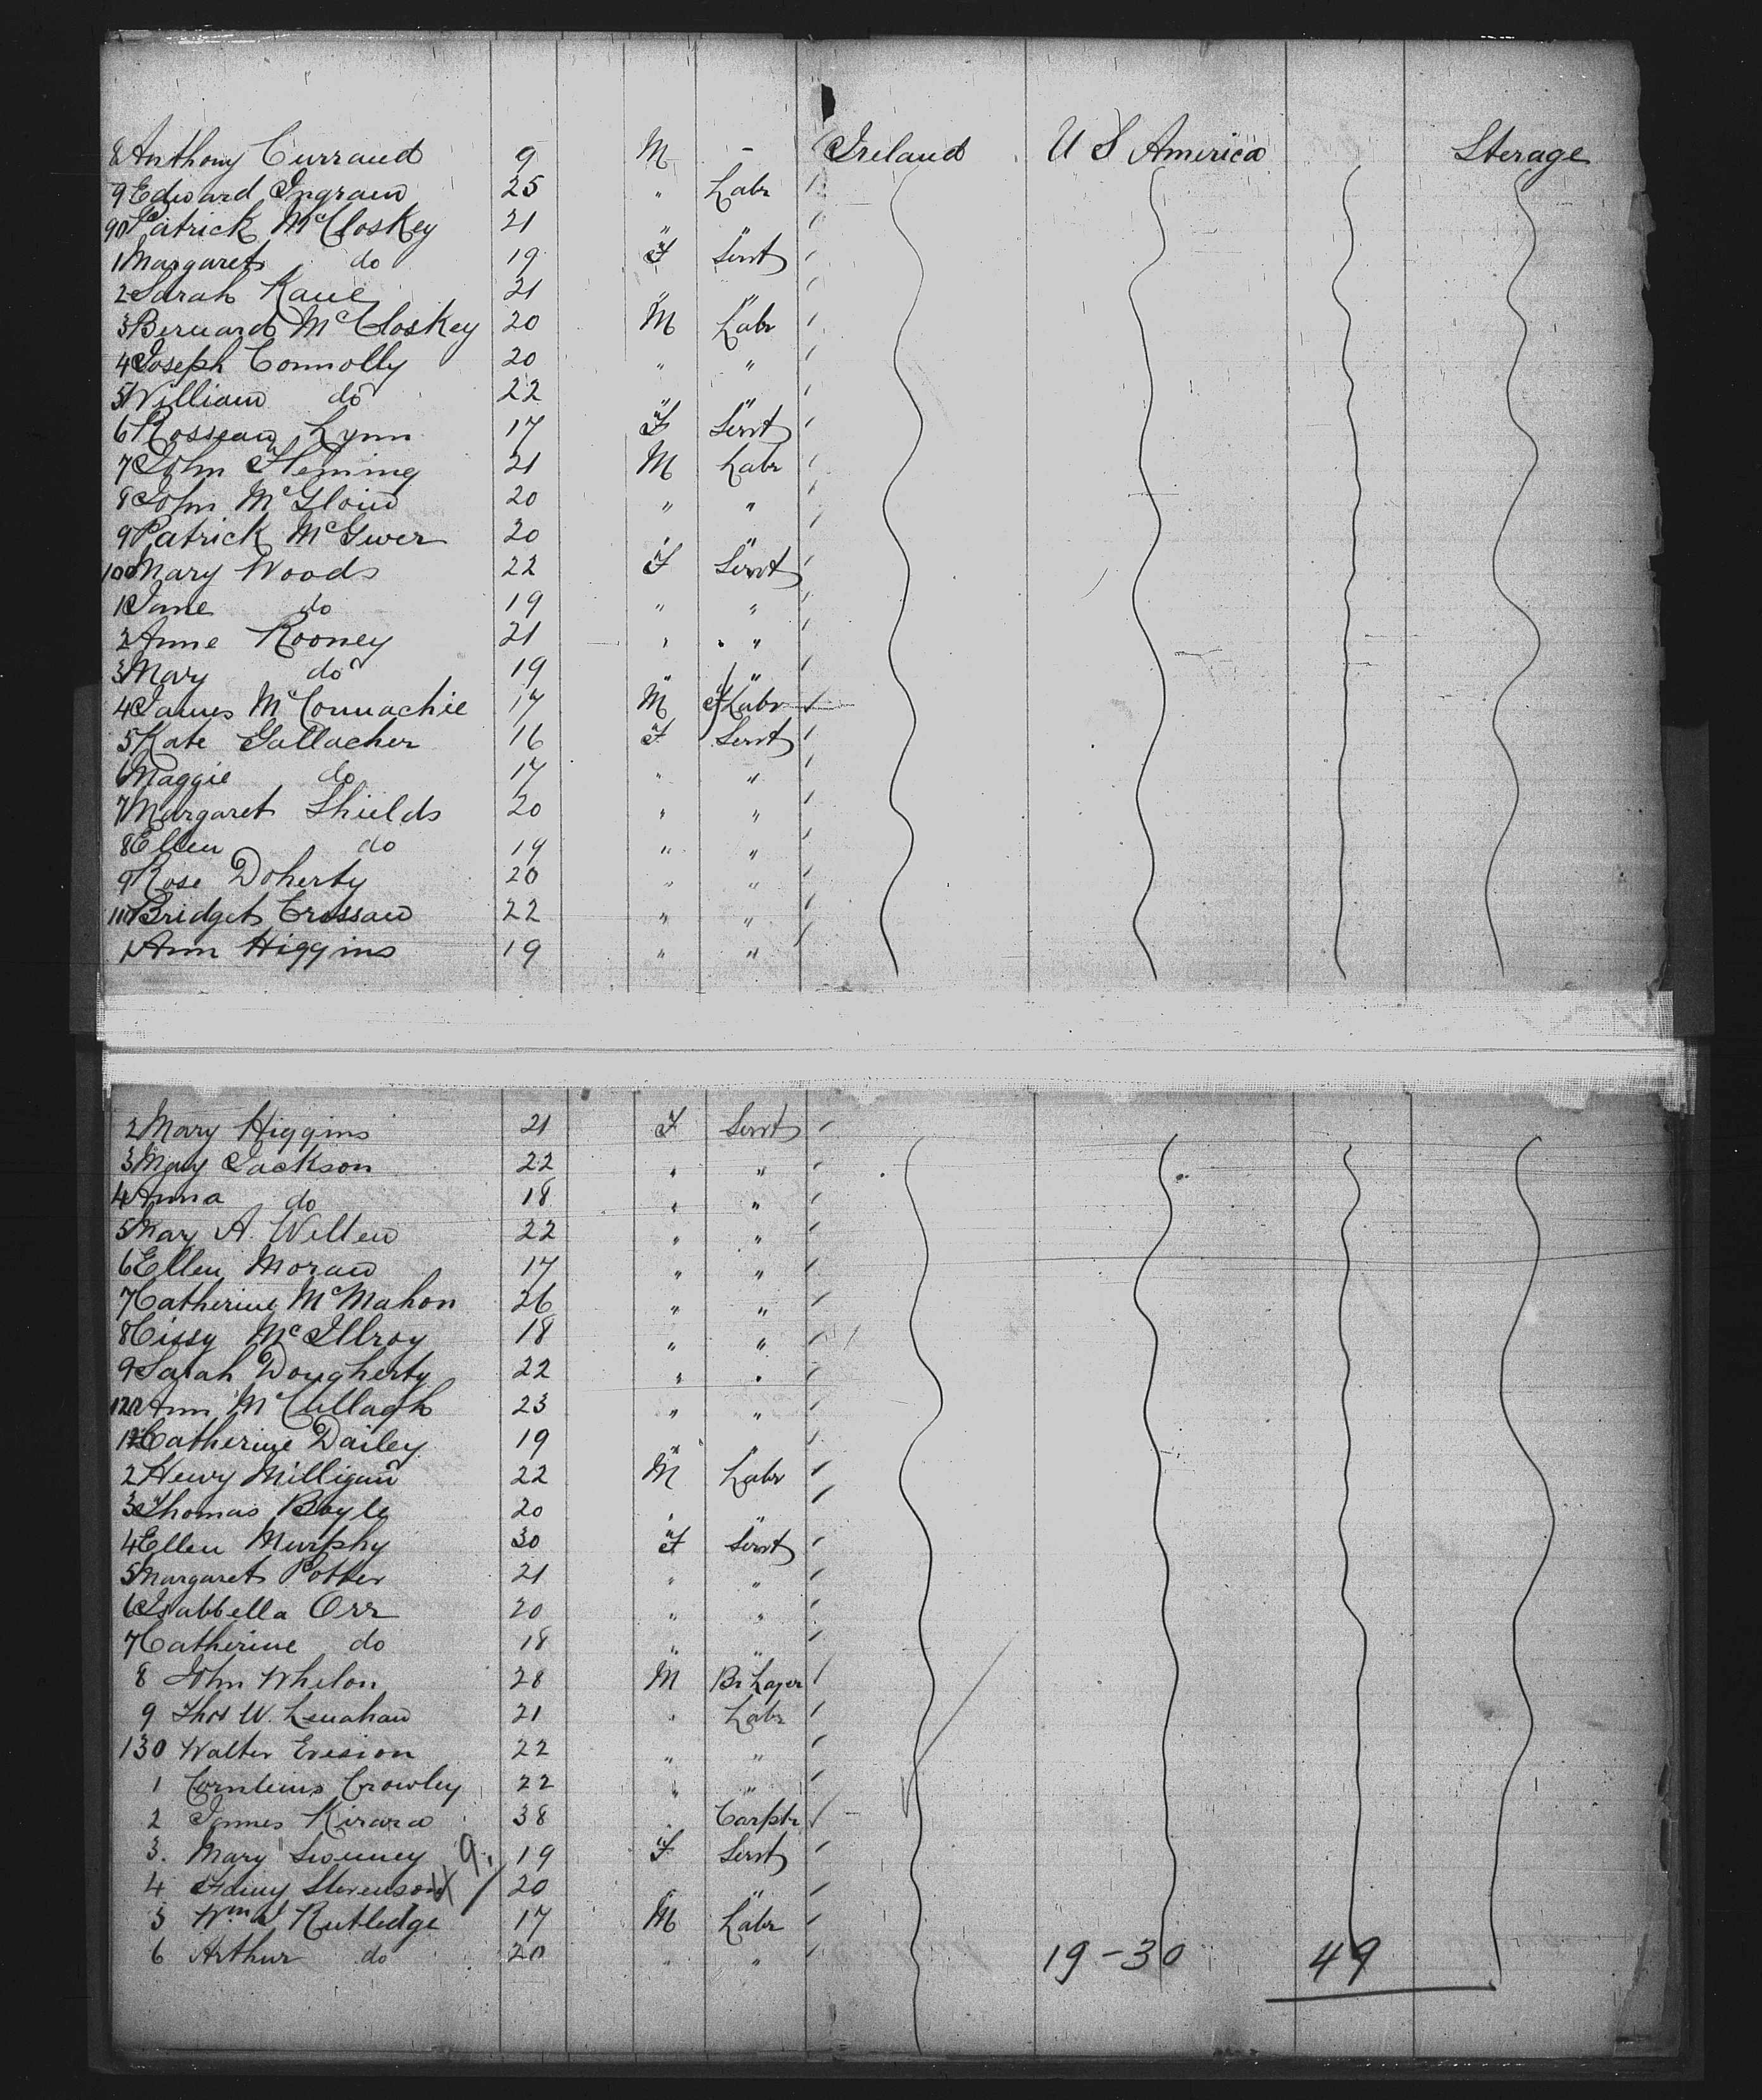 8 Anthony Curraud 9 M - Ireland U S America Sterage
9 Edward Ingram 25 " Labr
90 Patrick McCloskey 21 " "
1 Margaret do 19 F Servt
2 Sarah Kane 21 " "
3 Bernard McCloskey 20 M Labr
4 Joseph Connolly 20 " "
5 William do 22 " "
6 Rosseau Lynn 17 F Servt
7 John Fleming 21 M Labr
8 John McGloin 20 " "
9 Patrick McGwer 20 " "
100 Mary Woods 22 F Servt
1 Jane do 19 " "
2 Anne Rooney 21 " "
3 Mary do 19 " "
4 James McConnachie 17 M Labr
5 Kate Gallacher 16 F Servt
6 Maggie do 17 " "
7 Margaret Shields 20 " "
8 Ellen do 19 " "
9 Rose Doherty 20 " "
110 Bridget Crossan 22 " "
1 Ann Higgins 19 " "
2 Mary Higgins 21 F Servt
3 Mary Jackson 22 " "
4 Anna do 18 " "
5 Mary A. Wilten 22 " "
6 Ellen Moran 17 " "
7 Catherine McMahon 26 " "
8 Cissy McIllroy 18 " "
9 Sarah Dougherty 22 " "
120 Ann McCullagh 23 " "
1 Catherine Dailey 19 " "
2 Henry Milligan 22 M Labr
3 Thomas Boyle 20 " "
4 Ellen Murphy 30 F Servt
5 Margaret Potter 21 " "
6 Isabbella Orr 20 " "
7 Catherine do 18 " "
8 John Whelon 28 M Br Layer
9 Thos W. Lenahan 21 " Labr
130 Walter Evesion 22 " "
1 Cornleius Crowley 22 " "
2 James Kirara 38 " Carptr
3. Mary Sweeney 19 F Servt
4 Fainy Stevenson 20 " "
5 Wm J Rutledge 17 M Labr
6 Arthur do 20 " " 19-30 49